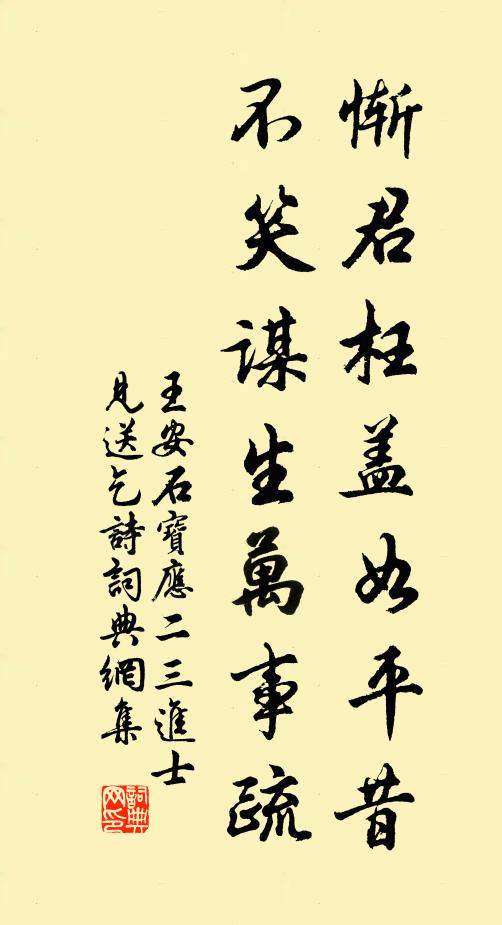 慚君枉盖如平昔
不笑謀生萬事疏
王安石寶應二三進士
見送乞詩詞典網集
詞典
网印